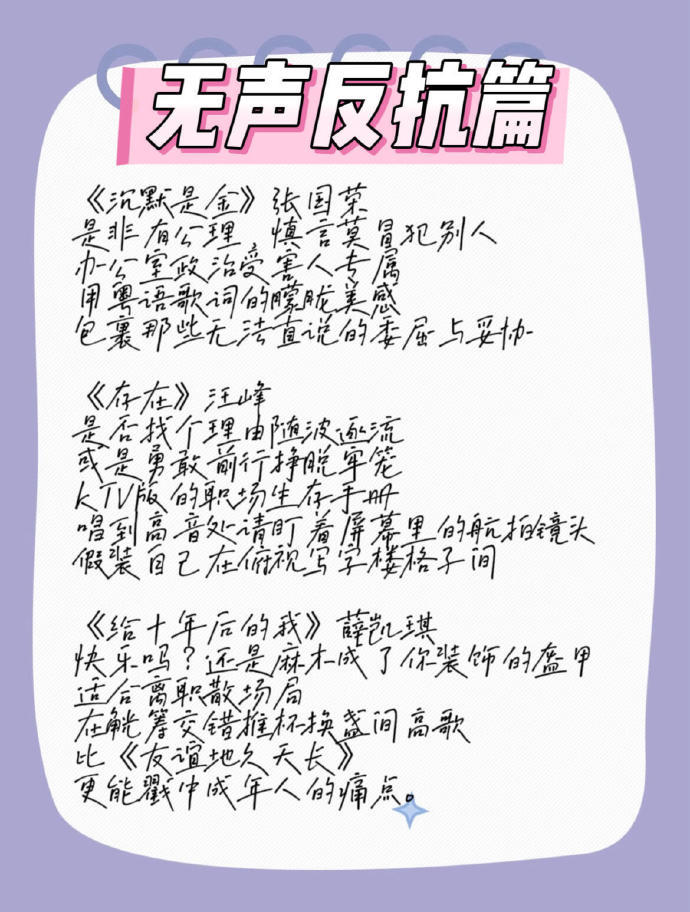 无声反抗篇
《沉默是金》张国荣
是非有公理 慎言莫冒犯别人
办公室政治受害人专属
用粤语歌词的朦胧美感
包裹那些无法直说的委屈与妥协
《存在》汪峰
是否找个理由随波逐流
或是勇敢前行挣脱牢笼
KTV版的职场生存手册
唱到高音处请盯着屏幕里的航拍镜头
假装自己在俯视写字楼格子间
《给十年后的我》薛凯琪
快乐吗？还是麻木成了你装饰的盔甲
适合离职散场局
在觥筹交错推杯换盏间高歌
比《友谊地久天长》
更能戳中成年人的痛点。